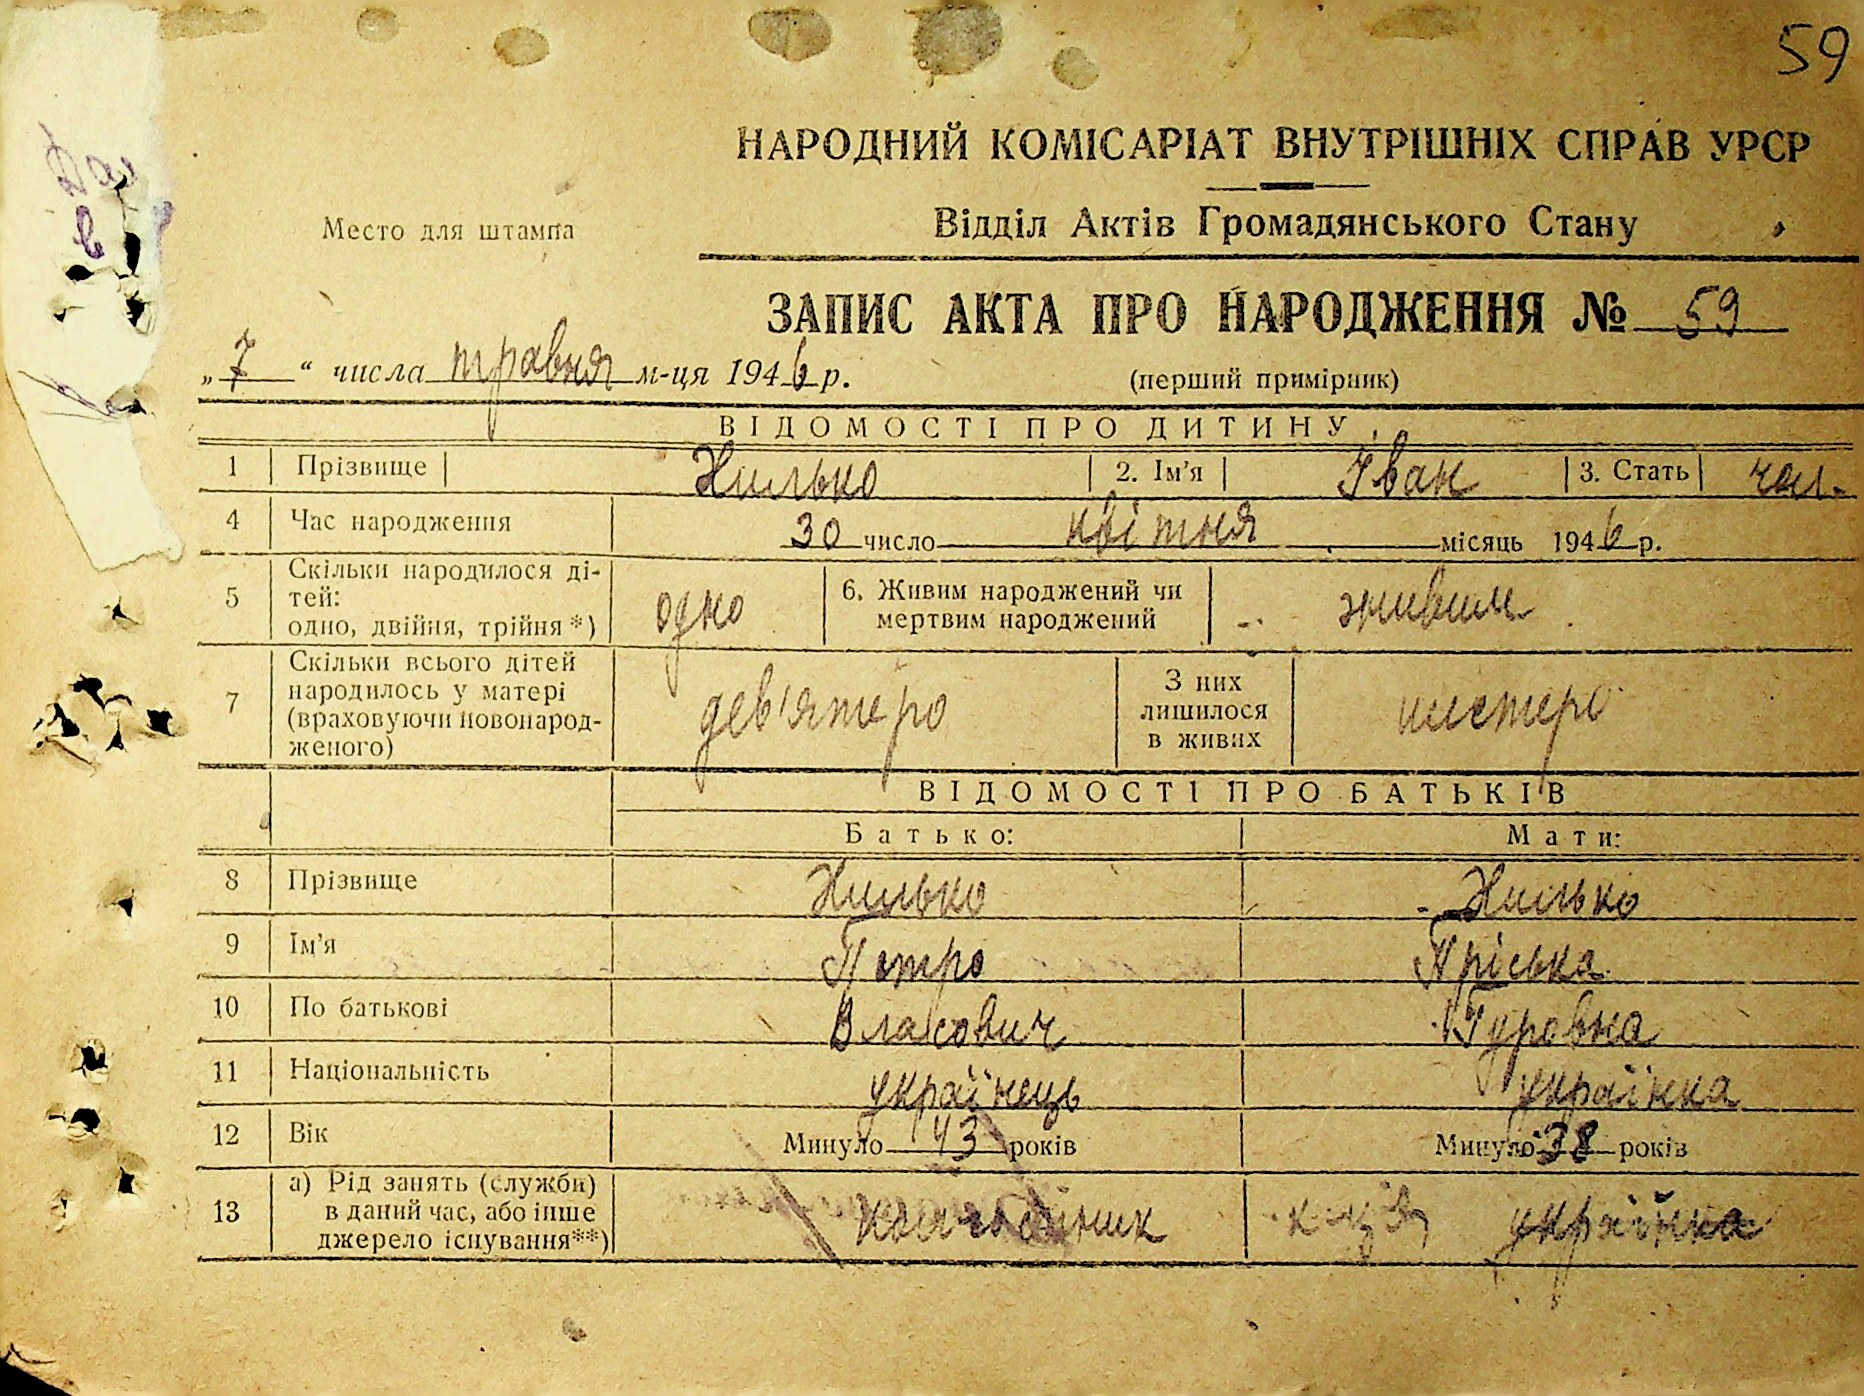 59
НАРОДНИЙ КОМІСАРІАТ ВНУТРІШНІХ СПРАВ УРСР
Место для штампа
Відділ Актів Громадянського Стану
ЗАПИС АКТА ПРО НАРОДЖЕННЯ № 59
„7“ числа травня м-ця 1946 р.
(перший примірник)
ВІДОМОСТІ ПРО ДИТИНУ
1 Прізвище Хилько 2. Ім'я Іван 3. Стать чол.
4 Час народження 30 число квітня місяць 1946 р.
5 Скільки народилося ді-
тей:
одно, двійня, трійня*) одно
6. Живим народжений чи
мертвим народжений живим
7 Скільки всього дітей
народилось у матері
(враховуючи новонарод-
женого) дев'ятеро
З них
лишилося
в живих шестеро
ВІДОМОСТІ ПРО БАТЬКІВ
Батько: Мати:
8 Прізвище Хилько Хилько
9 Ім'я Петро Пріська
10 По батькові Власович Гуровна
11 Національність українець українка
12 Вік Минуло 43 років Минуло 38 років
13 а) Рід занять (служби)
в даний час, або інше
джерело існування**) колгоспник українка